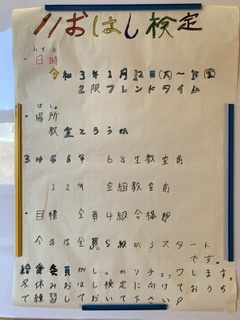 おはし検定
にちじ
・日時
令和3年1月12日(火)〜15(金)
2限フレンドタイム
ばしょ
・場所
教室とろうか
6年生教室前
・目標 全員4級合格
今年は全員5級からスタート
です。
給食委員がしっかりチェックします
冬休みおはし検定に向けておうち
で練習しておいて下さい!